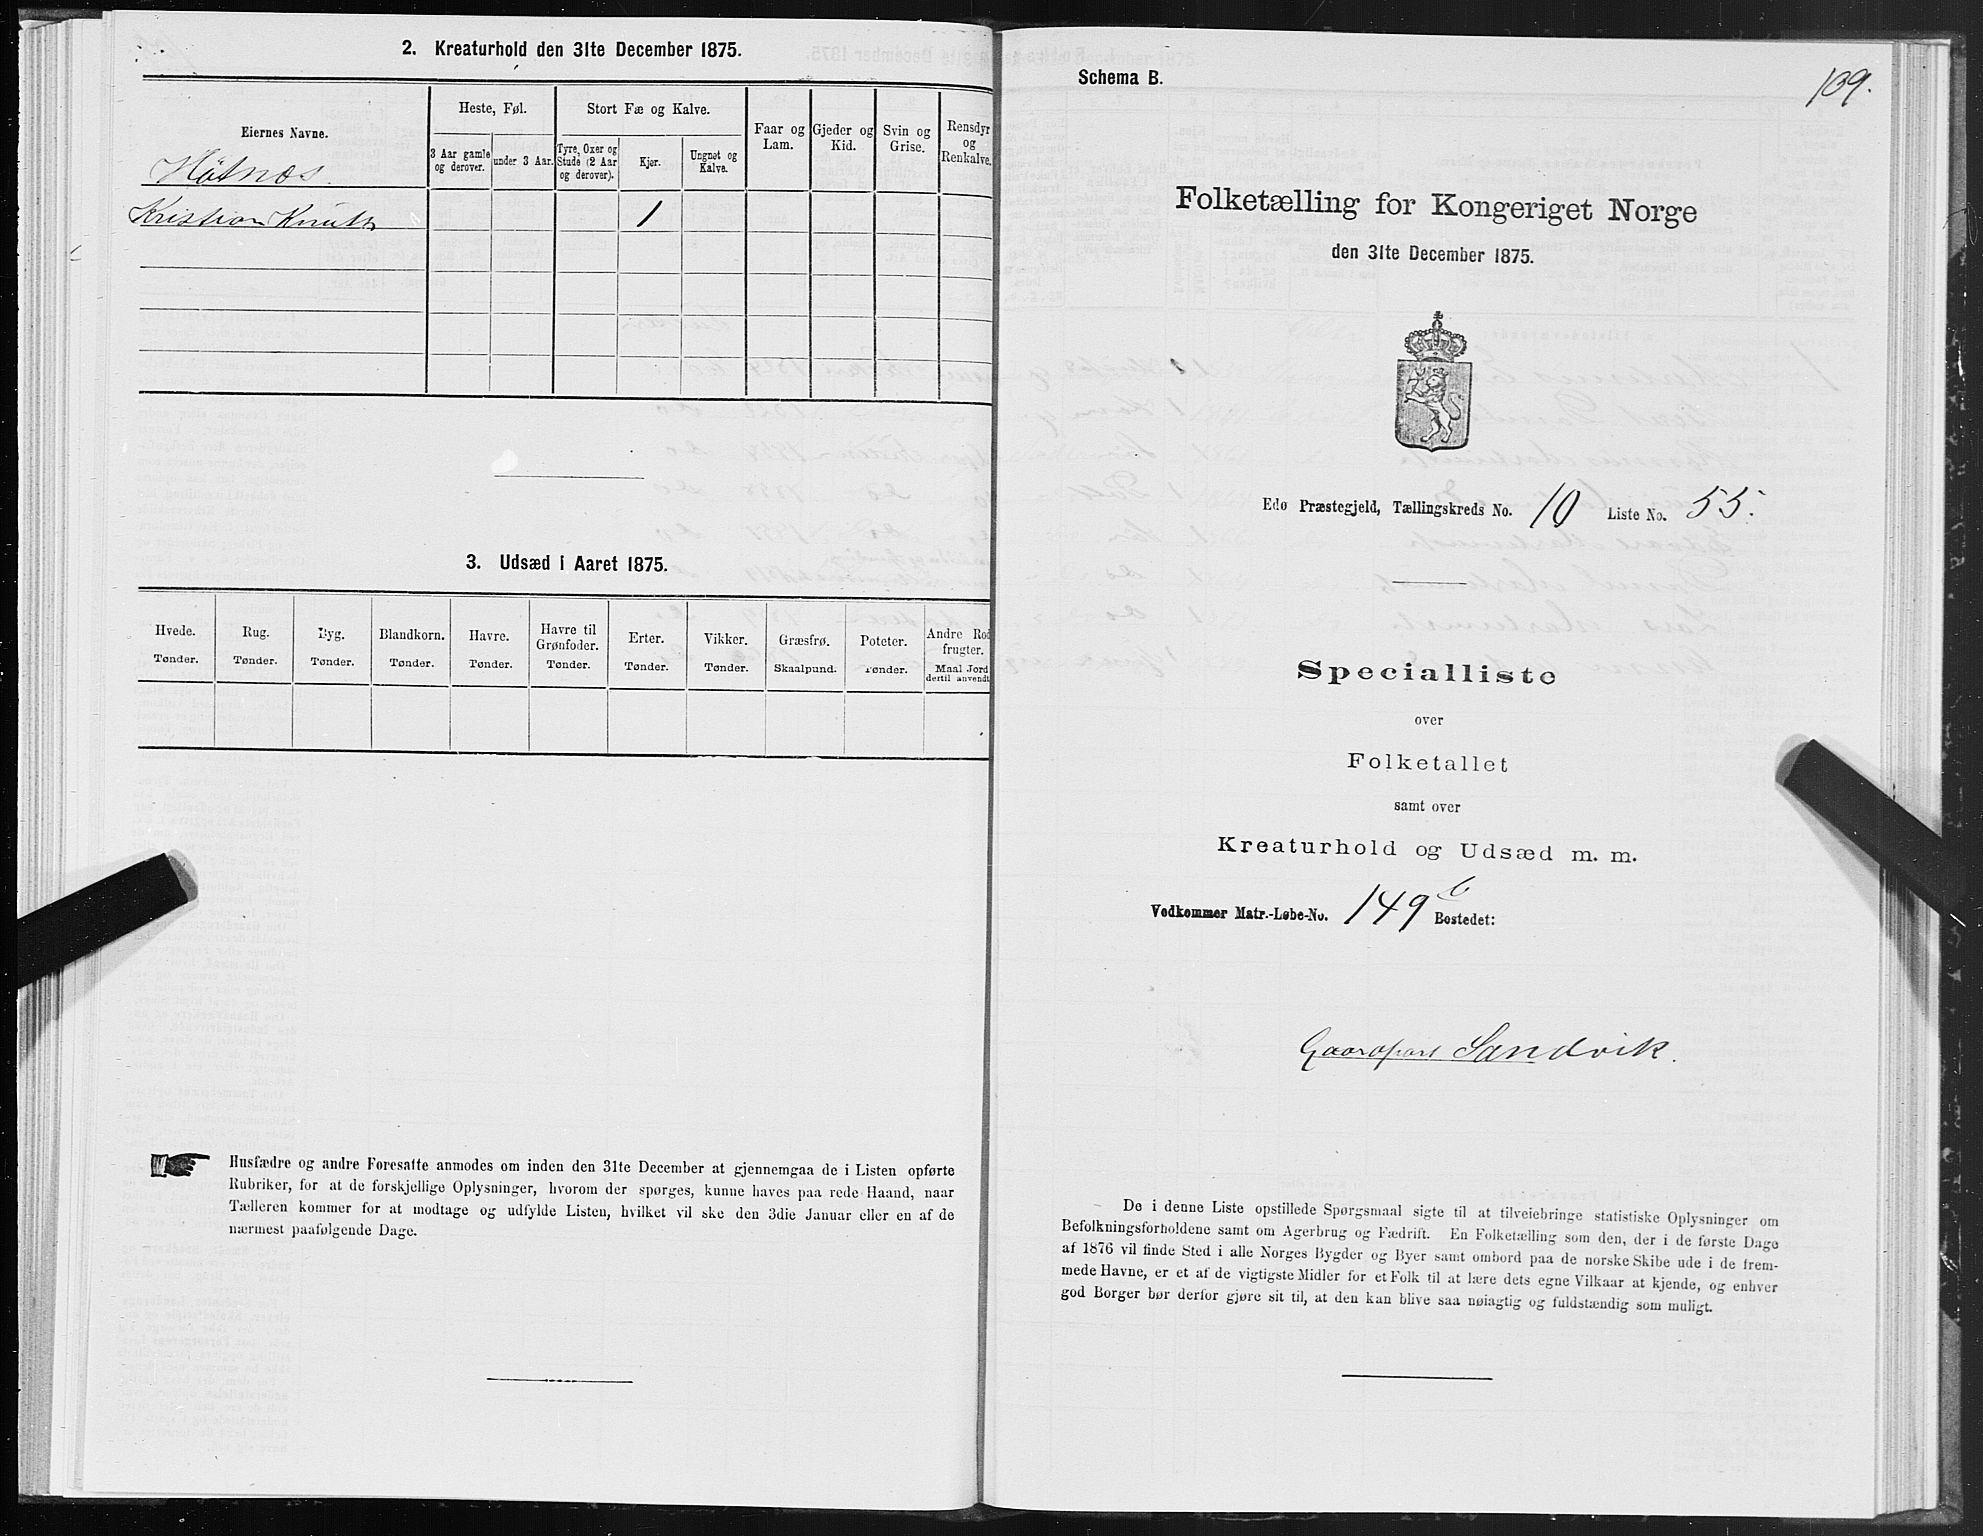 2. Kreaturhold den 31te December 1875.
Eiernes Navne.
Heste, Føl.
Stort Fæ og Kalve.
Faar og Lam.
Gjeder og Kid.
Svin og Grise.
Rensdyr og Renkalve.
3 Aar gamle og derover.
under 3 Aar.
Tyre, Oxer og Stude (2 Aar og derover).
Kjør.
Ungnøt og Kalve.
Høtnæs
Kristian Knuts 1
3. Udsæd i Aaret 1875.
Hvede. Rug. Byg. Blandkorn. Havre. Havre til Grønfoder. Erter. Vikker. Græsfrø. Poteter. Andre Rodfrugter.
Tønder. Tønder. Tønder. Tønder. Tønder. Tønder. Tønder. Tønder. Skaalpund. Tønder. Maal Jord dertil anvendt
Husfædre og andre Foresatte anmodes om inden den 31te December at gjennemgaa de i Listen opførte
Rubriker, for at de forskjellige Oplysninger, hvorom der spørges, kunne haves paa rede Haand, naar
Tælleren kommer for at modtage og udfylde Listen, hvilket vil ske den 3die Januar eller en af de
nærmest paafølgende Dage.
Schema B.
139.
Folketælling for Kongeriget Norge
den 31te December 1875.
Edø Præstegjeld, Tællingskreds No. 10 Liste No. 55.
Specialliste
over
Folketallet
samt over
Kreaturhold og Udsæd m. m.
Vedkommer Matr.-Løbe-No. 149 b Bostedet:
Gaardpart Sandvik.
De i denne Liste opstillede Spørgsmaal sigte til at tilveiebringe statistiske Oplysninger om
Befolkningsforholdene samt om Agerbrug og Fædrift. En Folketælling som den, der i de første Dage
af 1876 vil finde Sted i alle Norges Bygder og Byer samt ombord paa de norske Skibe ude i de frem-
mede Havne, er et af de vigtigste Midler for et Folk til at lære dets egne Vilkaar at kjende, og enhver
god Borger bør derfor gjøre sit til, at den kan blive saa nøiagtig og fuldstændig som muligt.